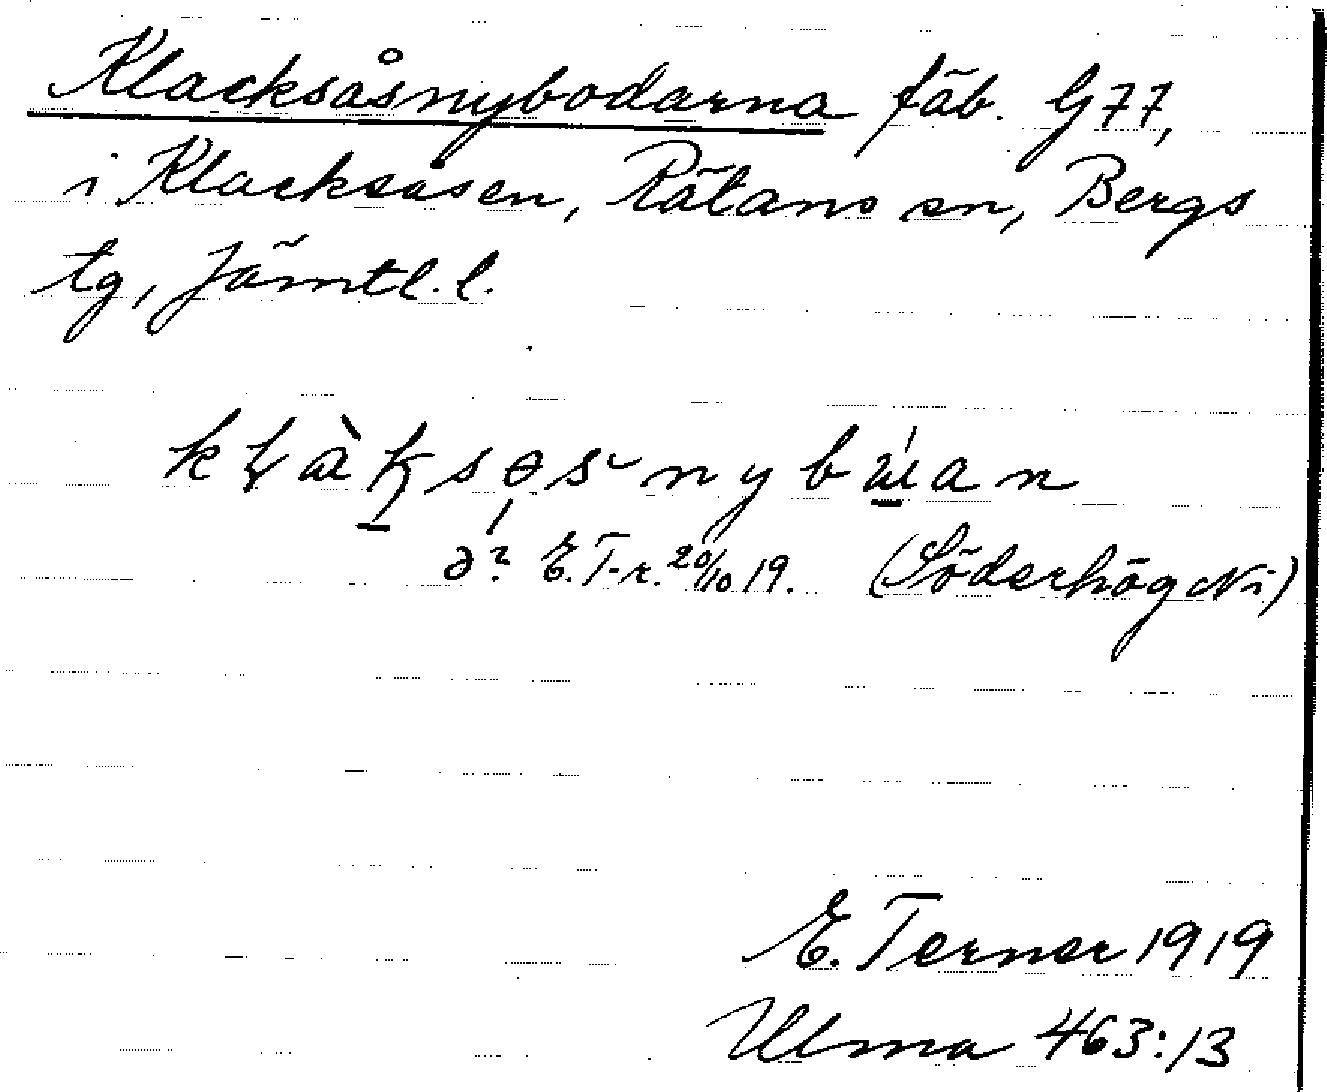 Klacksåsnybodarna fäb. G77,
i Klacksåsen, Rätans sn, Bergs
tg, Jämtl. l.
ə? E. T-r. 20/10 19. (Söderhög Ni)
E. Terner 1919
Ulma 463:13